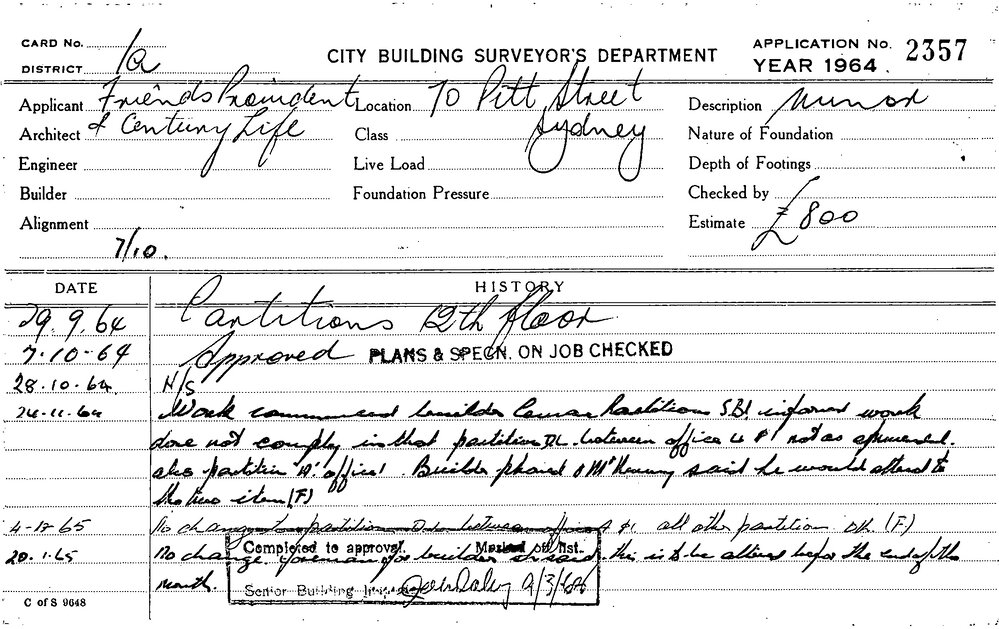 CARD No.
CITY BUILDING SURVEYOR'S DEPARTMENT
APPLICATION No. 2357
DISTRICT 1a
YEAR 1964
Applicant Friends Provident
Location 70 Pitt Street
Description Minor
Architect & Century Life
Class Sydney
Nature of Foundation
Engineer
Live Load
Depth of Footings
Builder
Foundation Pressure
Checked by
Alignment
Estimate £800
7/10.
DATE
HISTORY
29.9.64 Partitions 12th floor
7.10-64 Approved PLANS & SPECN. ON JOB CHECKED
28.10.64 N/S
24.11.64 Work commenced builder Partitions S.B.I informed work
does not comply in that partition between office 4 & 1 not as approved.
also partition office 1. Builder phoned said he would attend to
the two item (F)
65 No change to partition between office & 1 all other partition (F)
20.1.65 No change. foreman for builder this is to be altered before the end of the
month.
Completed to approval. Marked off list.
Senior Building 9/3/
C of S 9648